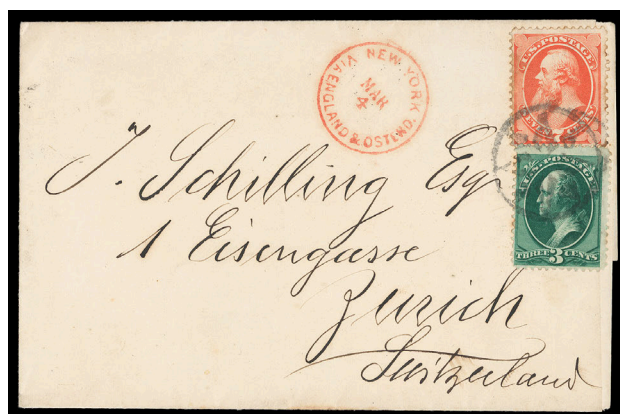 NEW YORK
VIA ENGLAND & OSTEND.
MAR
4
U.S. POSTAGE
SEVEN CENTS
U.S. POSTAGE
THREE 3 CENTS
J. Schilling Esq
1 Eisengasse
Zurich
Switzerland